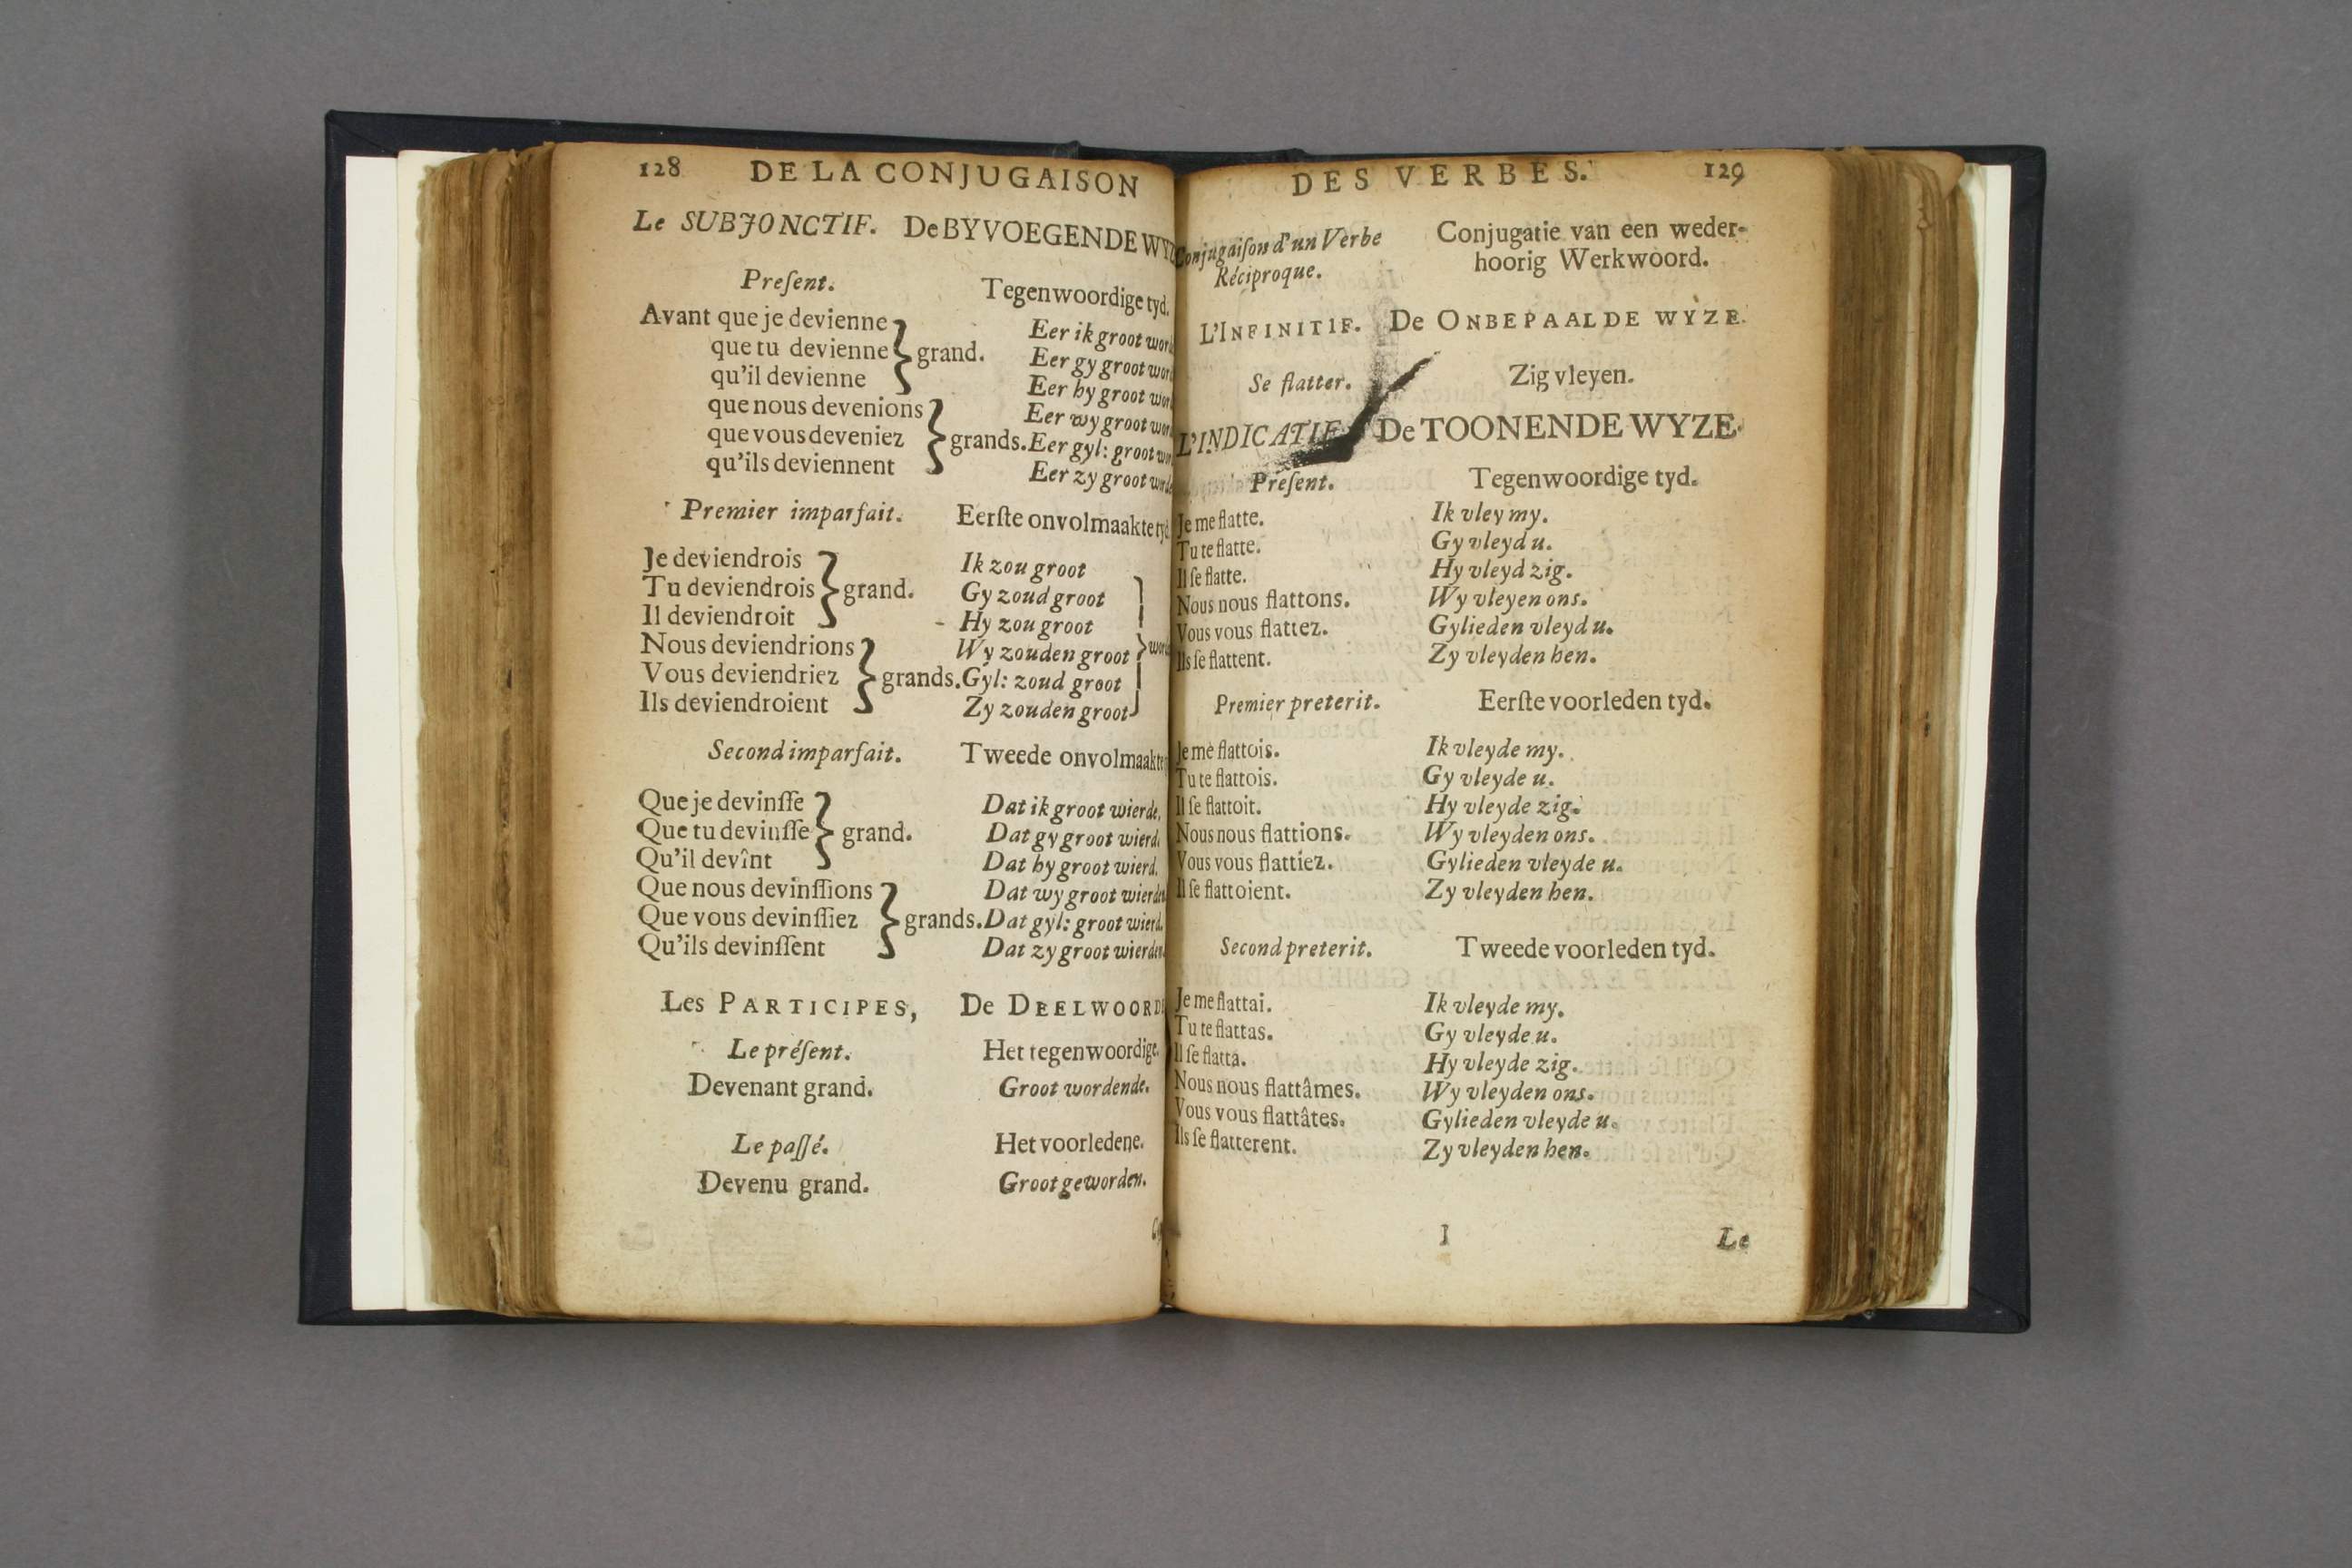 128 DE LA CONJUGAISON
Le SUBJONCTIF. De BYVOEGENDE
Preſent. Tegenwoordige tyd.
Avant que je devienne Eer ik groot
que tu devienne } grand. Eer gy groot
qu'il devienne Eer hy groot
que nous devenions Eer wy groot
que vous deveniez } grands. Eer gyl: groot
qu'ils deviennent Eer zy groot
Premier imparfait. Eerſte onvolmaakte
Je deviendrois Ik zou groot
Tu deviendrois } grand. Gy zoud groot
Il deviendroit Hy zou groot
Nous deviendrions Wy zouden groot }
Vous deviendriez } grands. Gyl: zoud groot
Ils deviendroient Zy zouden groot
Second imparfait. Tweede onvolmaakte
Que je devinſſe Dat ik groot wierde,
Que tu devinſſe } grand. Dat gy groot wierd.
Qu'il devînt Dat hy groot wierd.
Que nous devinſſions Dat wy groot wierden
Que vous devinſſiez } grands. Dat gyl: groot wierd.
Qu'ils devinſſent Dat zy groot wierden
Les PARTICIPES, De
Le préſent. Het tegenwoordige.
Devenant grand. Groot wordende.
Le paſſé. Het voorledene.
Devenu grand. Groot geworden.
DES VERBES. 129
Conjugaiſon d'un Verbe Conjugatie van een weder-
Réciproque. hoorig Werkwoord.
L'INFINITIF. De ONBEPAALDE WYZE.
Se flatter. Zig vleyen.
L'INDICATIF. De TOONENDE WYZE.
Preſent. Tegenwoordige tyd.
Je me flatte. Ik vley my.
Tu te flatte. Gy vleyd u.
Il ſe flatte. Hy vleyd zig.
Nous nous flattons. Wy vleyen ons.
Vous vous flattez. Gylieden vleyd u.
Ils ſe flattent. Zy vleyden hen.
Premier preterit. Eerſte voorleden tyd.
Je me flattois. Ik vleyde my.
Tu te flattois. Gy vleyde u.
Il ſe flattoit. Hy vleyde zig.
Nous nous flattions. Wy vleyden ons.
Vous vous flattiez. Gylieden vleyde u.
Il ſe flattoient. Zy vleyden hen.
Second preterit. Tweede voorleden tyd.
Je me flattai. Ik vleyde my.
Tu te flattas. Gy vleyde u.
Il ſe flatta. Hy vleyde zig.
Nous nous flattâmes. Wy vleyden ons.
Vous vous flattâtes. Gylieden vleyde u.
Ils ſe flatterent. Zy vleyden hen.
I Le